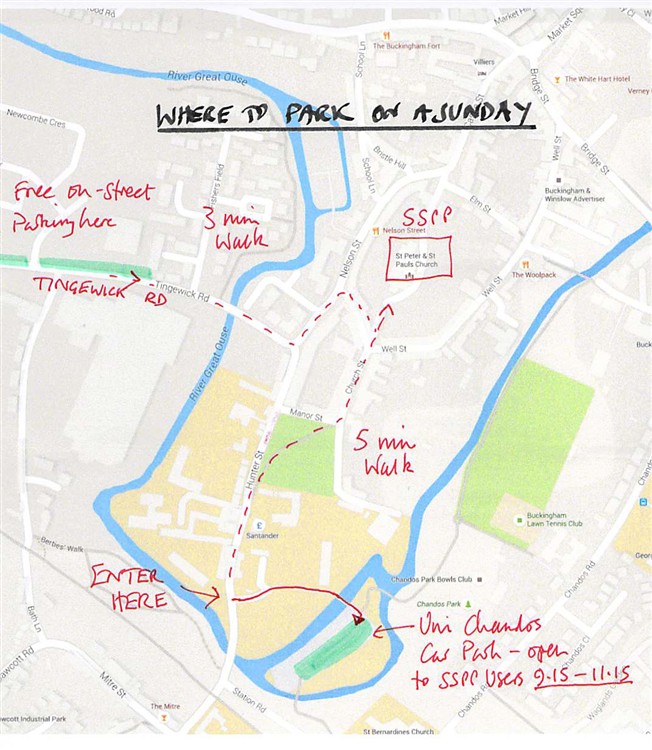 ood Rd
Market Hill
Market Sq
The Buckingham Fort
School Ln
Villiers
River Great Ouse
Bridge St
The White Hart Hotel
Verney
WHERE TO PARK ON A SUNDAY
Newcombe Cres
Bristle Hill
Well St
Bridge St
Free on-street
Parking here
ishers Field
3 min
Walk
School Ln
Elm St
Buckingham &
Winslow Advertiser
SSPP
Nelson Street
Nelson St
St Peter & St
Pauls Church
The Woolpack
TINGEWICK RD
Tingewick Rd
Well St
Well St
River Great Ouse
Church St
Manor St
5 min
Walk
Hunter St
Santander
Buckingham
Lawn Tennis Club
Chandos
Berties' Walk
ENTER
HERE
Chandos Park Bowls Club
Chandos Park
Georg
Chandos Rd
Bath Ln
Uni Chandos
Car Park - open
to SSPP Users 9.15-11.15
awcott Rd
Mitre St
Station Rd
The Mitre
awcott Industrial Park
St Bernardines Church